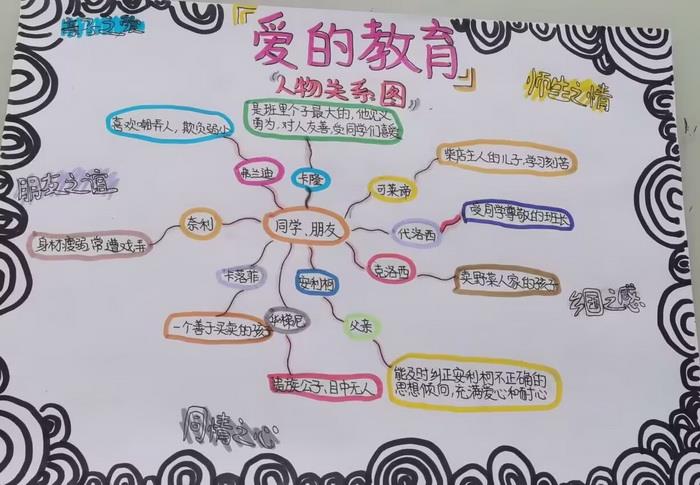 爱的教育
人物关系图
师生之情
朋友之谊
乡国之感
同情之心
同学、朋友
弗兰迪
喜欢嘲弄人，欺负弱小
卡隆
是班里个子最大的，他见义
勇为，对人友善，受同学们喜爱
可莱谛
柴店主人的儿子，学习刻苦
代洛西
受同学尊敬的班长
克洛西
卖野菜人家的孩子
安利柯
父亲
能及时纠正安利柯不正确的
思想倾向，充满爱心和耐心
华梯尼
贵族公子、目中无人
卡洛菲
一个善于买卖的孩子
奈利
身材瘦弱，常遭戏弄